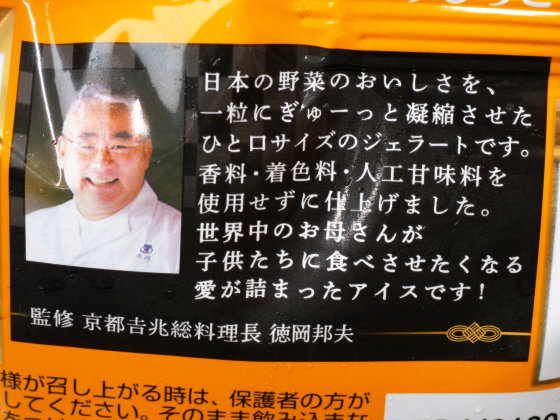 日本の野菜のおいしさを、
一粒にぎゅーっと凝縮させた
ひと口サイズのジェラートです。
香料・着色料・人工甘味料を
使用せずに仕上げました。
世界中のお母さんが
子供たちに食べさせたくなる
愛が詰まったアイスです!
監修 京都𠮷兆総料理長 徳岡邦夫
様が召し上がる時は、保護者の方が
してください。そのまま飲み込まな